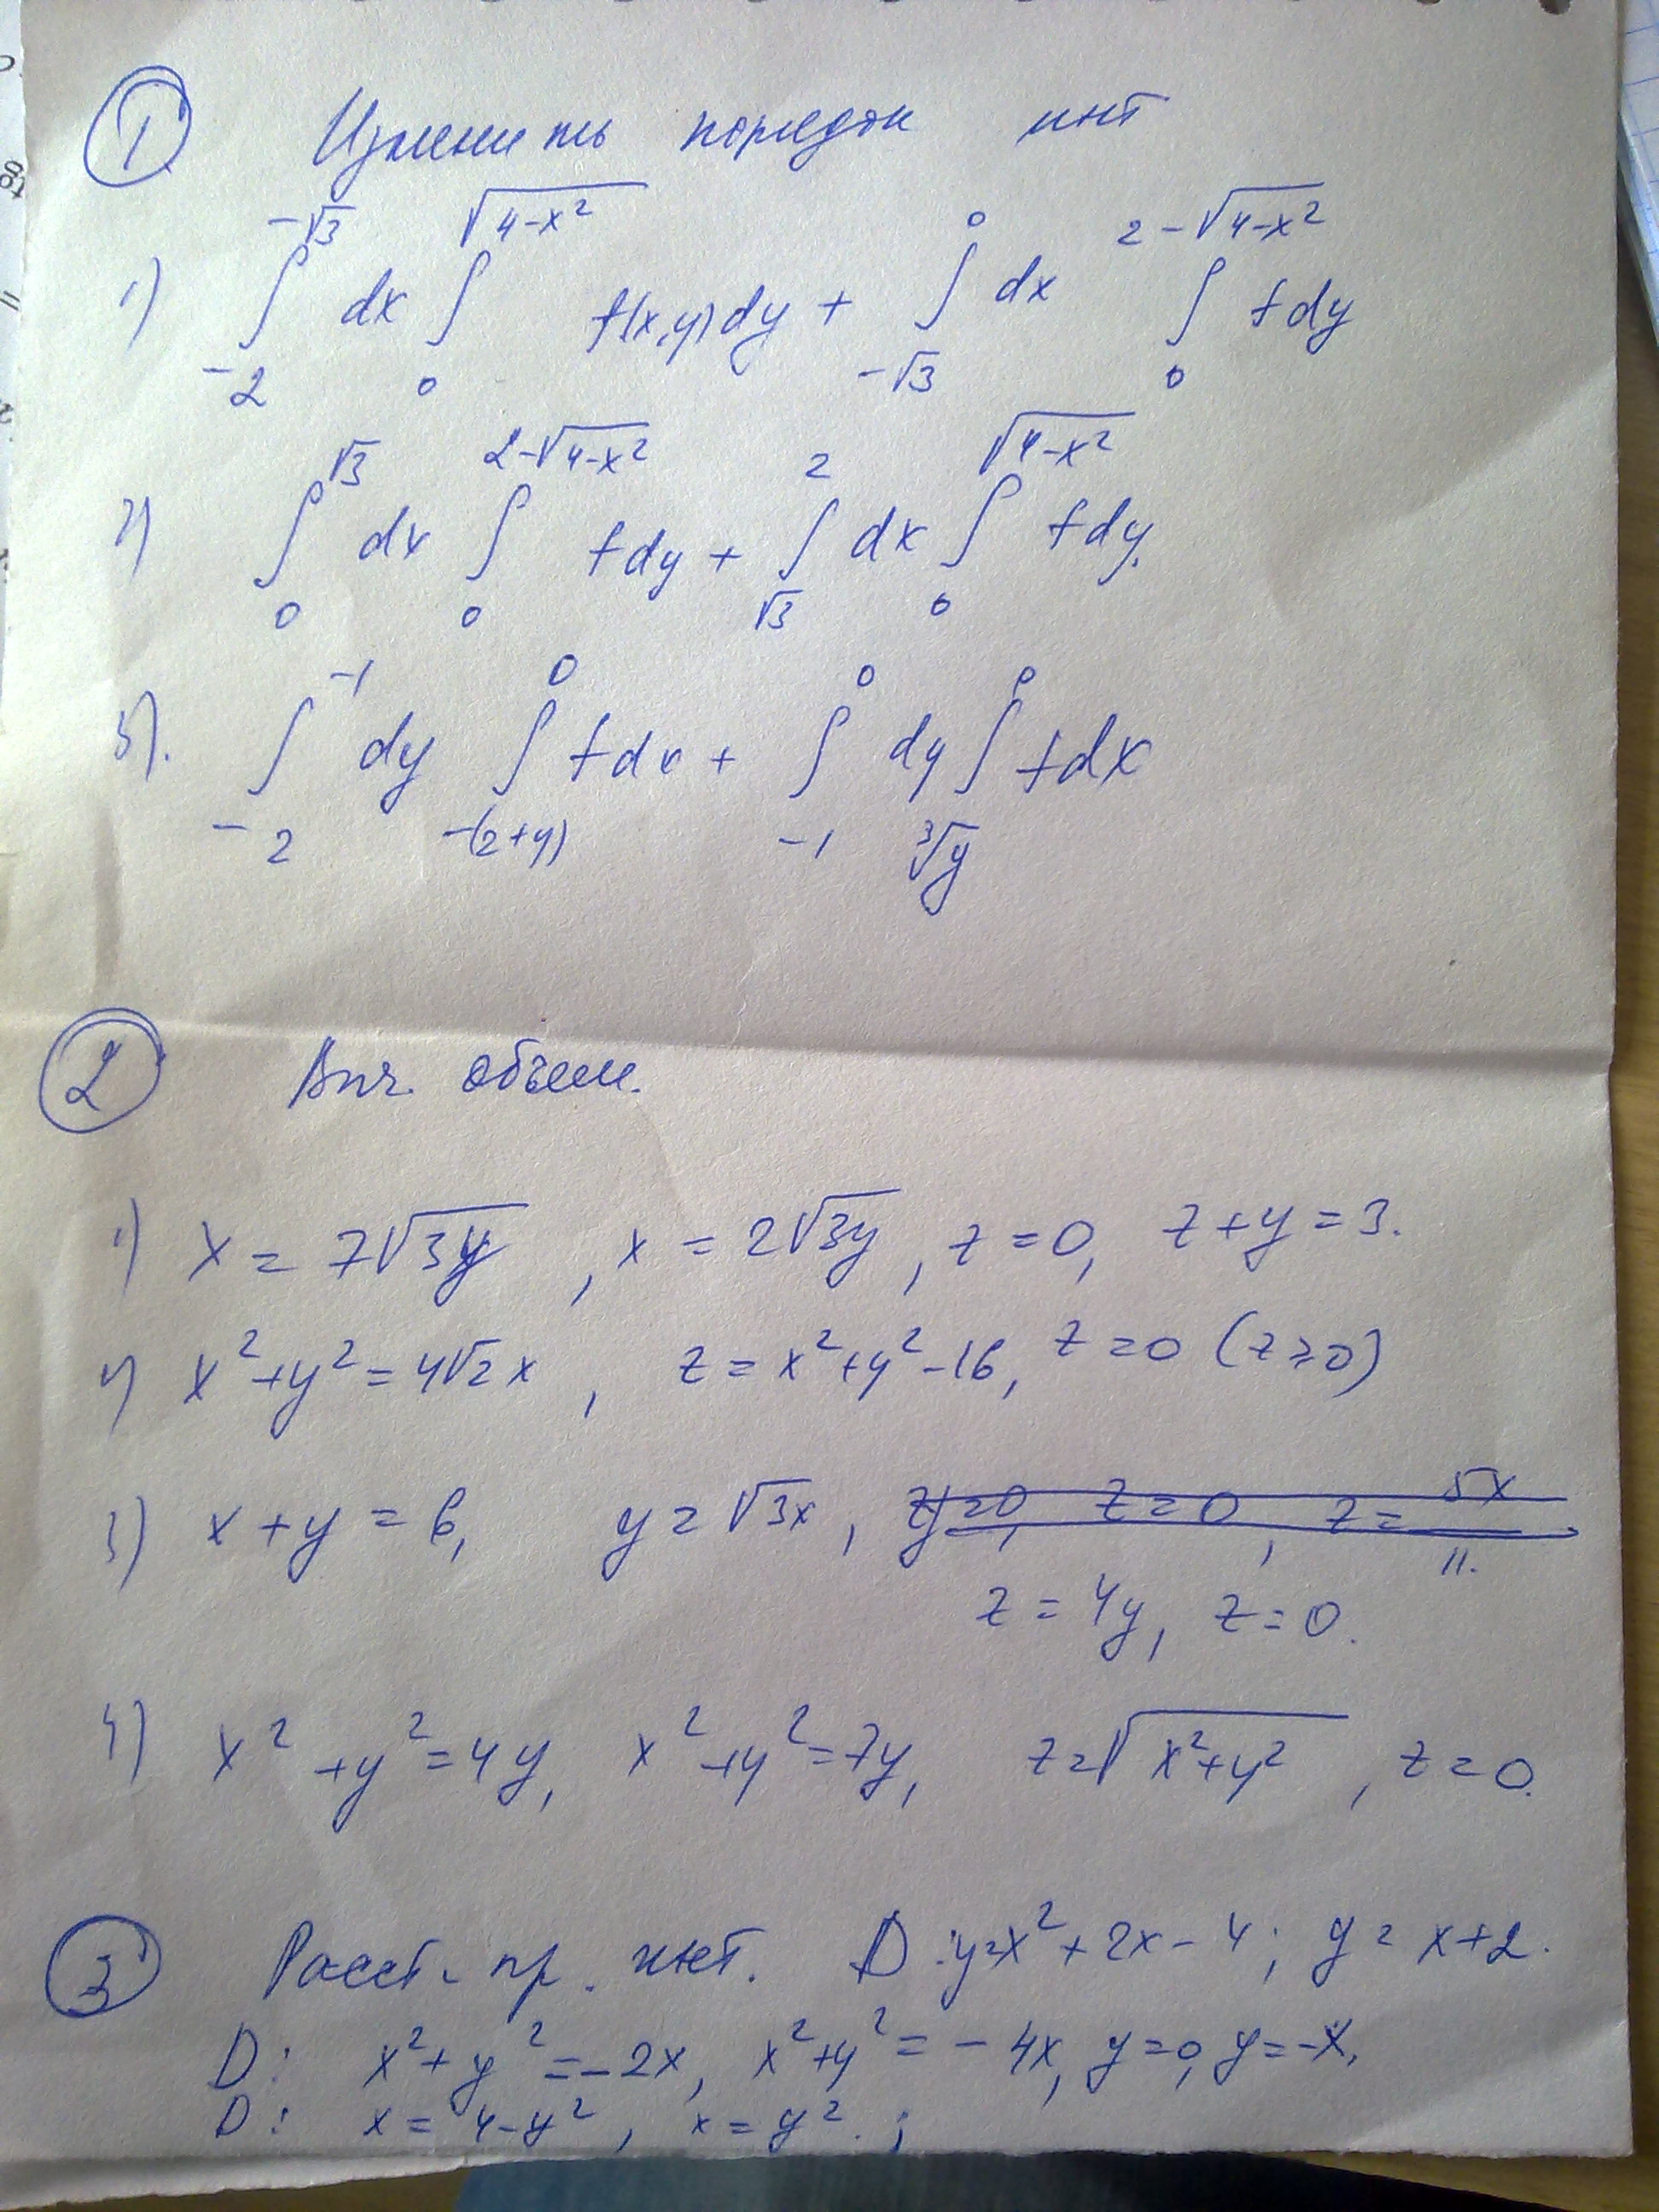 ① Изменить порядок инт
1) ∫_{-2}^{-√3} dx ∫_{0}^{√(4-x²)} f(x,y)dy + ∫_{-√3}^{0} dx ∫_{0}^{2-√(4-x²)} f dy
2) ∫_{0}^{√3} dx ∫_{0}^{2-√(4-x²)} f dy + ∫_{√3}^{2} dx ∫_{0}^{√(4-x²)} f dy.
3). ∫_{-2}^{-1} dy ∫_{-(2+y)}^{0} f dx + ∫_{-1}^{0} dy ∫_{∛y}^{0} f dx
② Выч. объем.
1) x = 7√3y, x = 2√3y, z = 0, z + y = 3.
2) x² + y² = 4√2x, z = x² + y² - 16, z = 0 (z ≥ 0)
3) x + y = 6, y = √3x, y = 0, z = 0, z = 5x/11.
z = 4y, z = 0.
4) x² + y² = 4y, x² + y² = 7y, z = √(x² + y²), z = 0.
③ Расст. пр. инт. D: y = x² + 2x - 4; y = x + 2.
D: x² + y² = -2x, x² + y² = -4x, y = 0, y = -x,
D: x = 4 - y², x = y². ;